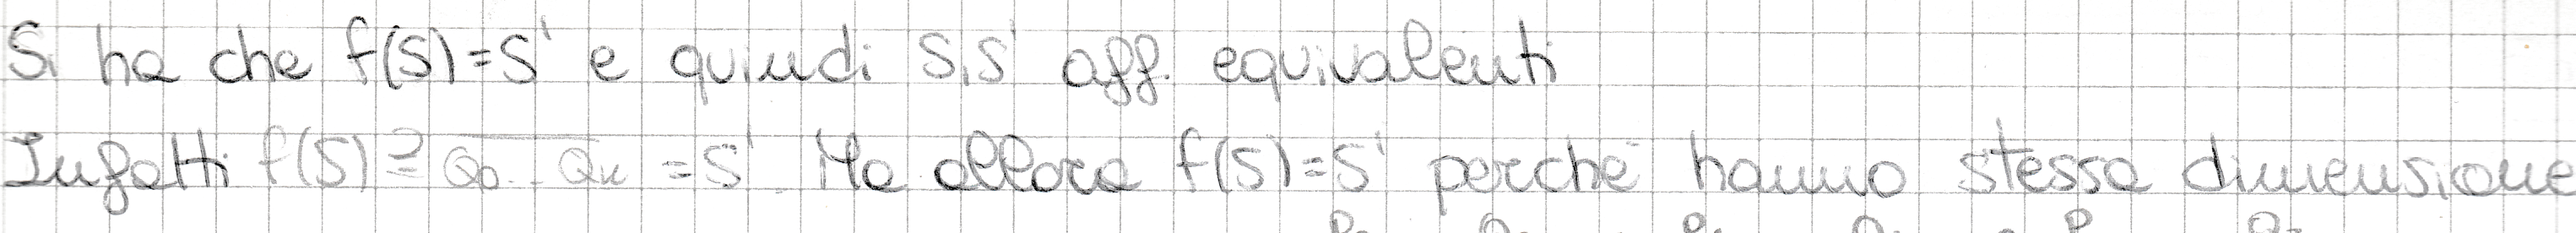 Si ha che f(S)=S' e quindi S,S' aff. equivalenti
Infatti f(S) ⊇ Q₀...Qₖ = S'. Ma allora f(S)=S' perché hanno stessa dimensione